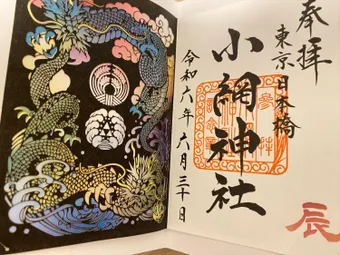 奉拝
東京日本橋
小網神社
令和六年六月三十日
辰